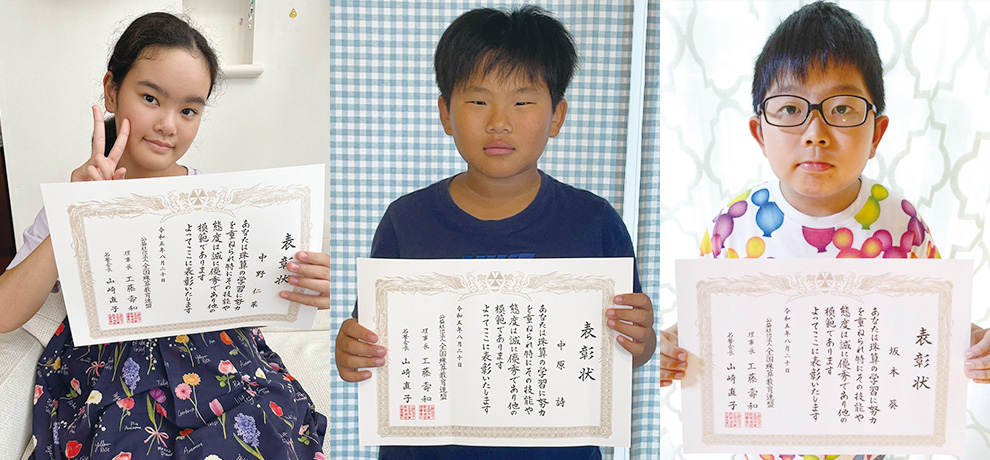 表彰状
中野 仁菜
あなたは珠算の学習に努力
を重ねられ特にその技能や
態度は誠に優秀であり他の
模範であります
よってここに表彰いたします
令和五年八月二十日
公益社団法人全国珠算教育連盟
理事長 工藤壽和
名誉会長 山崎直子
表彰状
中原 詩
あなたは珠算の学習に努力
を重ねられ特にその技能や
態度は誠に優秀であり他の
模範であります
よってここに表彰いたします
令和五年八月二十日
公益社団法人全国珠算教育連盟
理事長 工藤壽和
名誉会長 山崎直子
表彰状
坂本 葵
あなたは珠算の学習に努力
を重ねられ特にその技能や
態度は誠に優秀であり他の
模範であります
よってここに表彰いたします
令和五年八月二十日
公益社団法人全国珠算教育連盟
理事長 工藤壽和
名誉会長 山崎直子